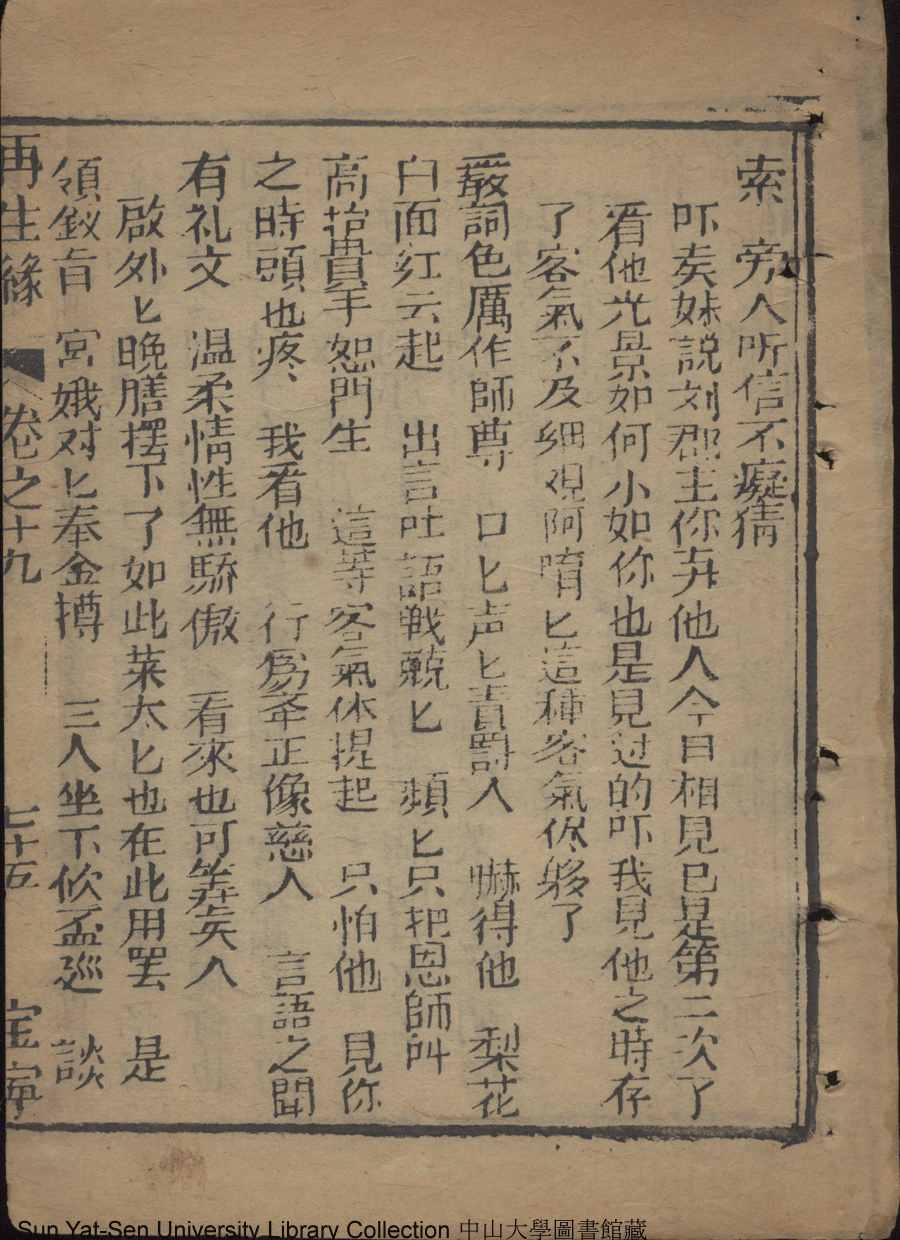 索　旁人听信不癡猜
吓矣妹説刘郡主你弃他人今日相見已是第二次了
看他光景如何小如你也是見过的吓我見他之時存
了客氣不及細观阿唷匕這種客氣伱够了
嚴詞色厲作師尊　口匕声匕責罸人　嚇得他　梨花
白面红云起　出言吐語戰兢匕　頻匕只把恩師呌
高抬貴手恕門生　這等客氣休提起　只怕他　見你
之時頭也疼　我看他　行爲奉正像慈人　言語之間
有礼文　温柔情性無驕傲　看來也可筭矣人
啟外匕晚膳摆下了如此莱太匕也在此用罢　是
領釵旨　宮娥对匕奉金撙　三人坐下飲盃巡　談
再生緣　卷之十九　七十五　宝寧
Sun Yat-Sen University Library Collection 中山大學圖書館藏